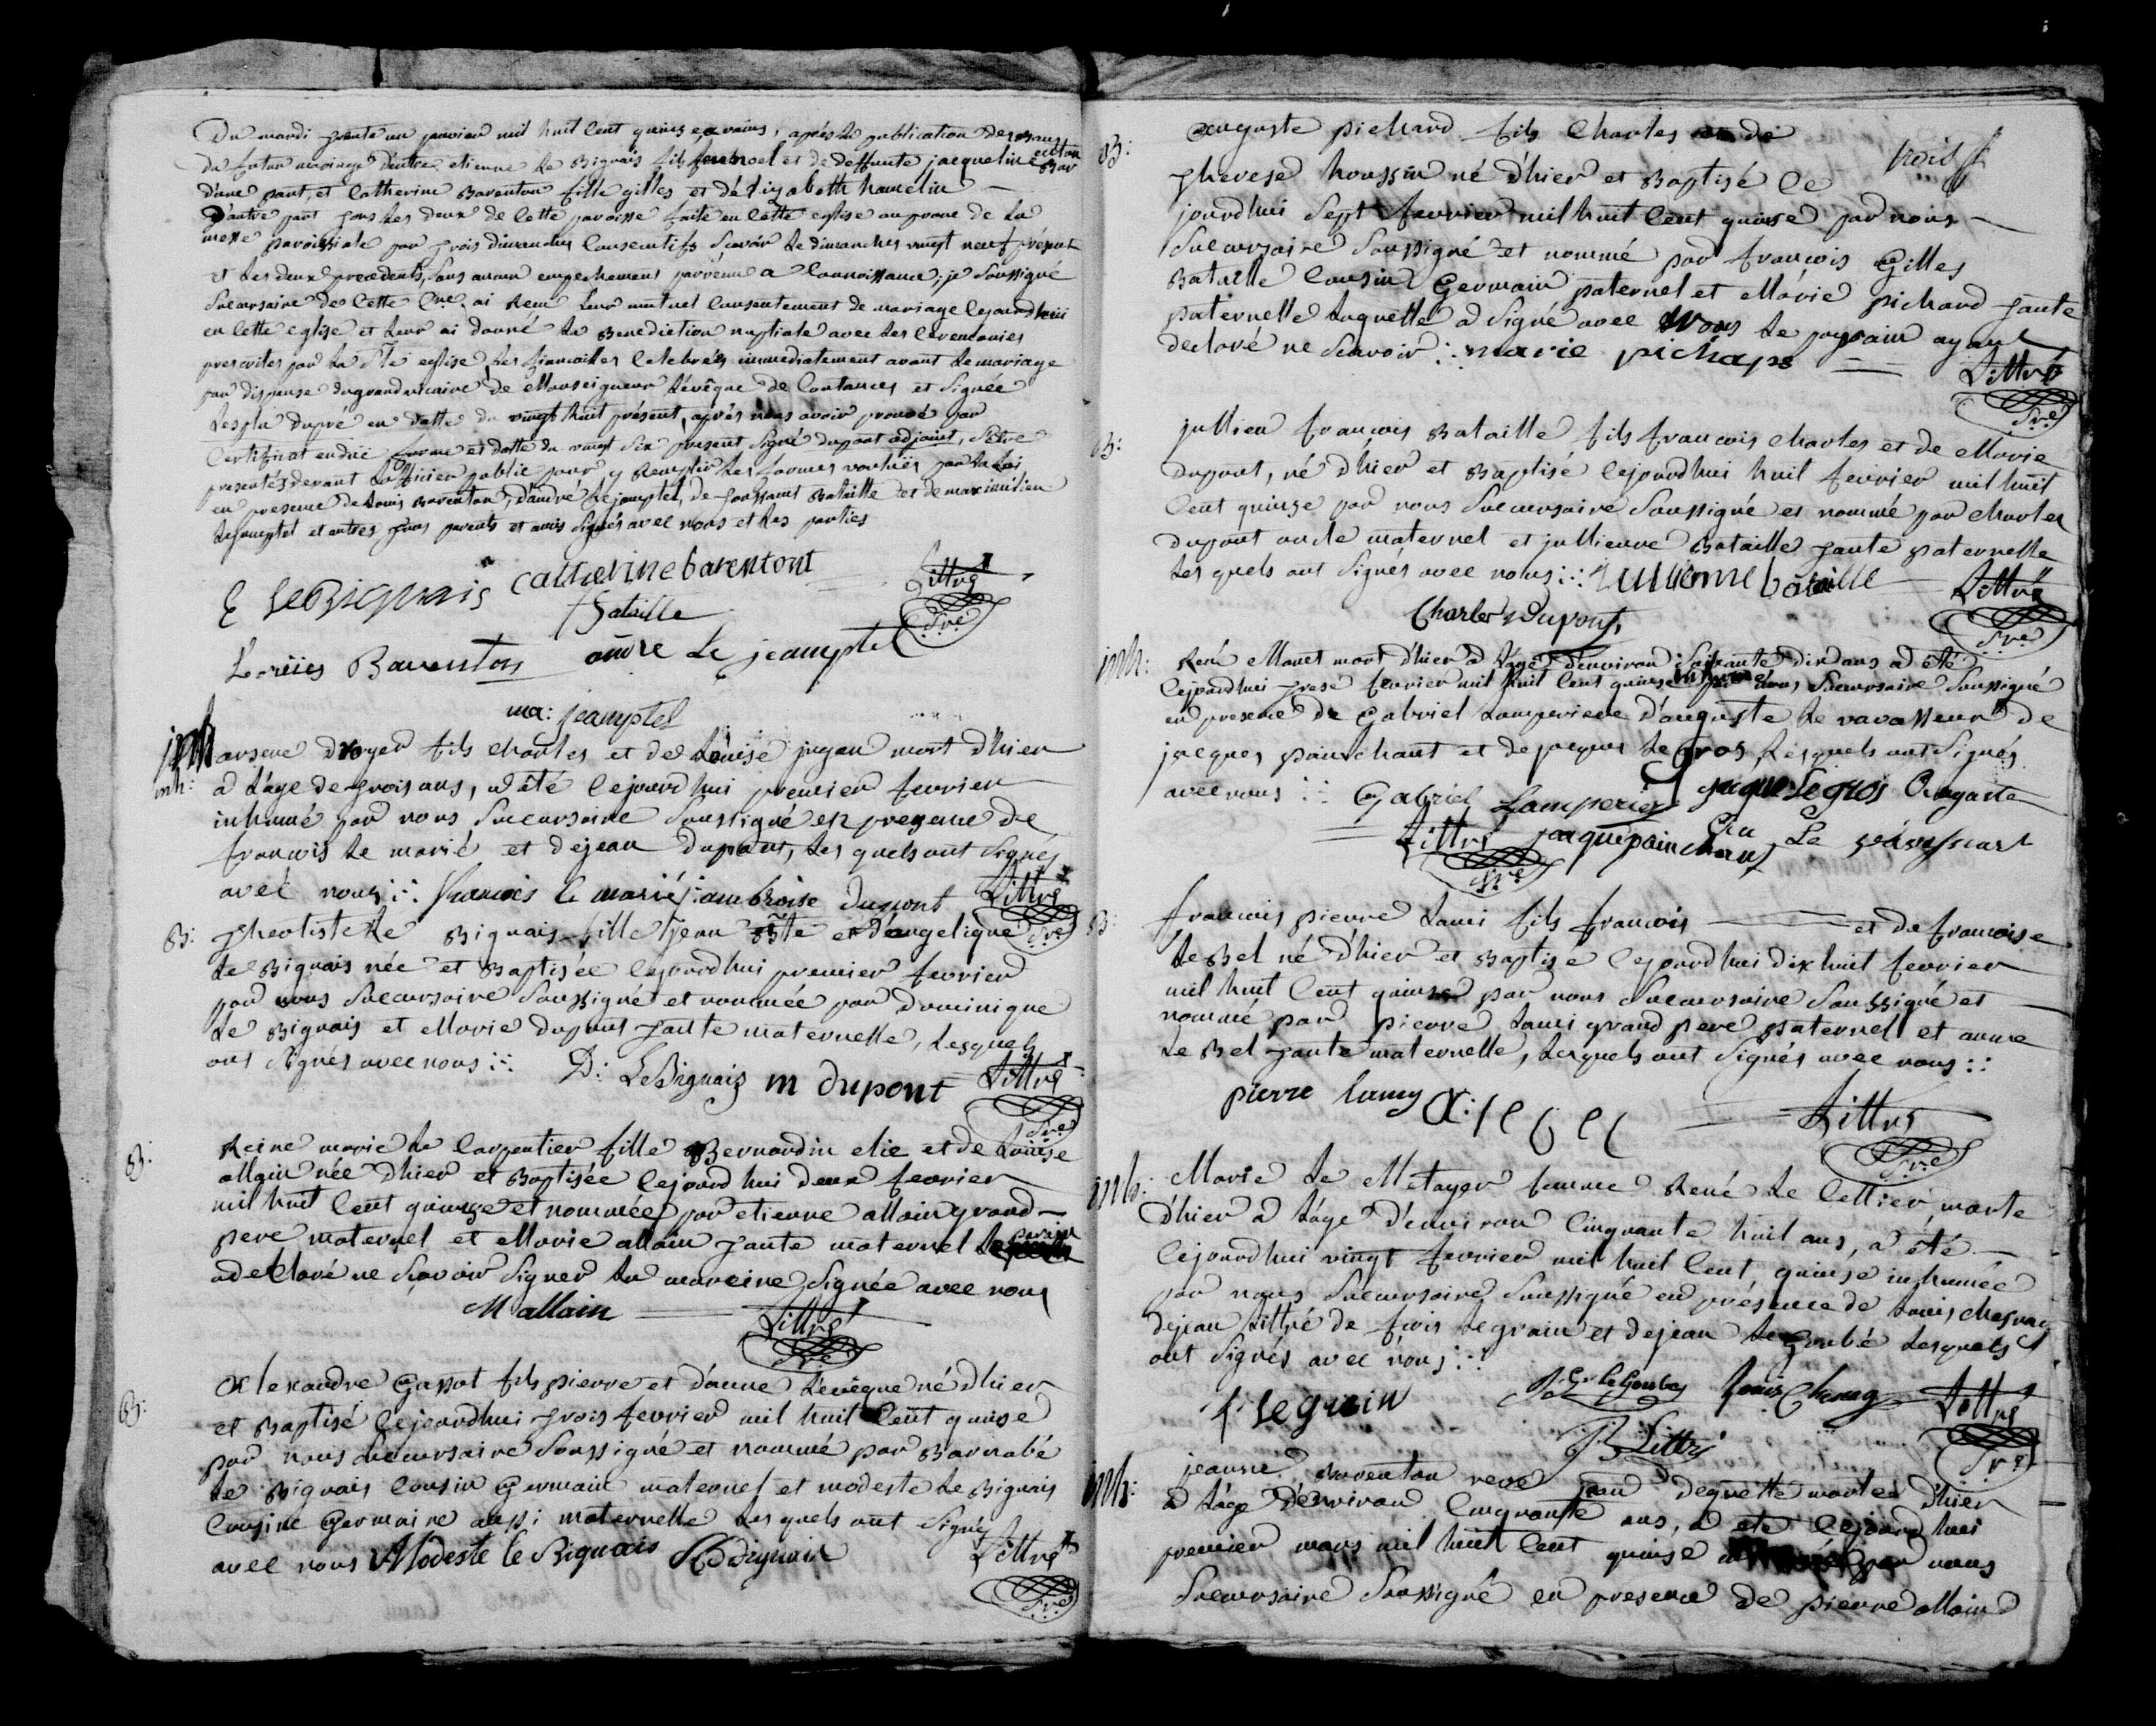 Du mardi trente un janvier mil huit cent quinze, après la publication des bans
du futur mariage d'entre etienne Le Bignais fils feu noel et de deffunte jacqueline
d'une part, et Catherine Barenton fille gilles et d'élizabeth hamelin
D'autre part tous les deux de cette paroisse faite en cette eglise au prone de la
messe paroissiale par trois dimanches consecutifs scavoir le dimanches vingt neuf présent
et les deux precedents, sans aucun empechement parvenu a connoissance; je soussigné
Succursaire de cette ai Reçu leur mutuel consentement de mariage cejourdhui
en cette eglise et leur ai donné la Benediction nuptiale avec les ceremonies
prescrites par la Ste eglise, les fiancailles celebrées immediatement avant le mariage
par dispense du grand vicaire de Monseigneur L'evêque de Coutances et signée
Lesplu dupré en datte du vingt huit présent, après nous avoir prouvé par
Certificat en düe forme et datte du vingt six présent signé dupont adjoint, s'etre
presentés devant L'officier public pour y Remplir les formes voulües par la loi
en presence de Louis Barenton, d'andré Lejamptel, de toussaint Bataille et de maximilien
Lejamptel et autres tous parents et amis signés avec nous et les parties
E LeBignais catherine barentont Littré
Bataille Sre
Loüies Barenton andre Le jeamptel
ma: jeamptel
inh: arsene droyer fils charles et de Louise jugan mort d'hier
a L'age de trois ans, a été cejourdhui premier fevrier
inhumé par nous Succursaire Soussigné en presence de
francois Le marié et dejean dupont, les quels ont signés
avec nous francois le marié ambroise dupont Littré
Sre
B: theotiste Le Bignais fille jean Bte et d'angelique
Le Bignais née et Baptisée cejourdhui premier fevrier
par nous Succursaire soussigné et nommée par dominique
Le Bignais et Marie dupont tante maternelle, Lesquels
ont signés avec nous D: LeBignais m dupont Littré
Sre
B: Reine marie Le Carpentier fille Bernardin elie et de Louise
allain née d'hier et Baptisée cejourdhui deux fevrier
mil huit cent quinze et nommée par etienne allain grand
pere maternel et Marie allain tante maternel Le parain
a déclaré ne Sçavoir signer la mareine signée avec nous
M allain Littré
Sre
B: Alexandre Gassot fils pierre et d'anne L'evêque né d'hier
et Baptisé cejourdhui trois fevrier mil huit cent quinze
par nous Succursaire Soussigné et nommé par Barnabé
Le Bignais cousin Germain maternel et modeste Le Bignais
Cousine Germaine aussi maternelle Les quels ont signés
avec nous Modeste le Bignais Littré
Sre
trois
B: auguste pichard fils Charles et de
therese houssin né d'hier et Baptisé ce
jourdhui Sept fevrier mil huit cent quinse par nous
Succursaire Soussigné et nommé par francois Gilles
Bataille Cousin Germain paternel et Marie pichard tante
paternelle Laquelle a signé avec Nous Le parain ayant
declaré ne Scavoir marie pichard Littré
Sre
B: jullien francois Bataille fils francois charles et de Marie
dupont, né d'hier et Baptisé cejourdhui huit fevrier mil huit
Cent quinze par nous Succursaire Soussigné et nommé par charles
dupont oncle maternel et jullienne Bataille tante paternelle
Les quels ont signés avec nous jullienne bataille Littré
Charles Dupont Sre
inh: René Monet mort d'hier a L'age d'environ Soixante dix ans a été
Cejourdhui trese fevrier mil huit cent quinze inhumé par nous Succursaire Soussigné
en presence de Gabriel Lamperiere d'auguste Le vavasseur de
jacques painchaut et de jacques Le gros, Lesquels ont signés
avec nous Gabriel Lamperiere jaque Le gros auguste
Littré jacque painchaut Le vavasseur
Sre
B: francois pierre Lami fils francois et de francoise
Le Bel né d'hier et Baptise cejourdhui dix huit fevrier
mil huit cent quinse par nous Succursaire Soussigné et
nommé par pierre Lami grand pere paternel et anne
Le Bel tante maternelle, Lesquels ont signés avec nous
pierre lamy a: le bel Littré
Sre
inh: Marie Le Métayer femme René Le Cellier, morte
d'hier a L'age d'environ Cinquante huit ans, a été
Cejourdhui vingt fevrier mil huit cent quinse inhumée
par nous Succursaire Soussigné en présence de Louis
dejean Littré de fois Legrain et dejean Le Goubé Lesquels
ont signés avec nous
f. Legrain J. G. Le Goubey Louis Littré
JB Littré Sre
inh: jeanne Barenton veve jean deguette morte d'hier
a L'age d'environ Cinquante ans, a ete cejourdhui
premier mars mil huit cent quinse par nous
Succursaire Soussigné en presence de pierre allain